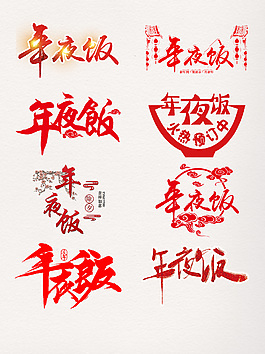 年夜饭
年夜饭
年夜飯
年夜饭
火热预订中
年夜饭
除夕
年夜饭
年夜飯
年夜饭